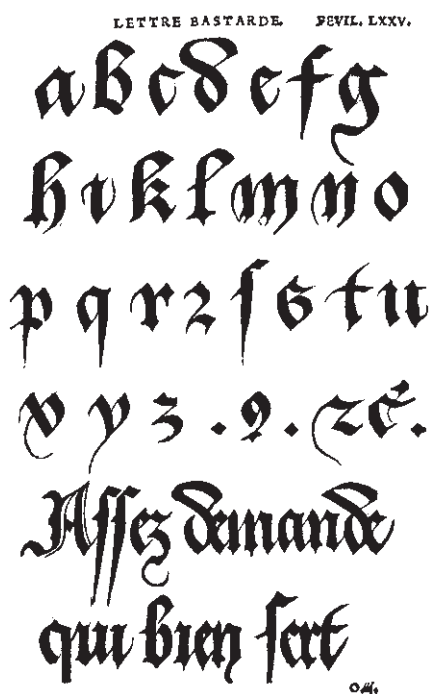 LETTRE BASTARDE. FEVIL. LXXV.
a b c d e f g
h i k l m n o
p q r ꝛ ſ s t u
x y z . ꝯ . ⁊c̃.
Aſſez demande
qui bien ſert